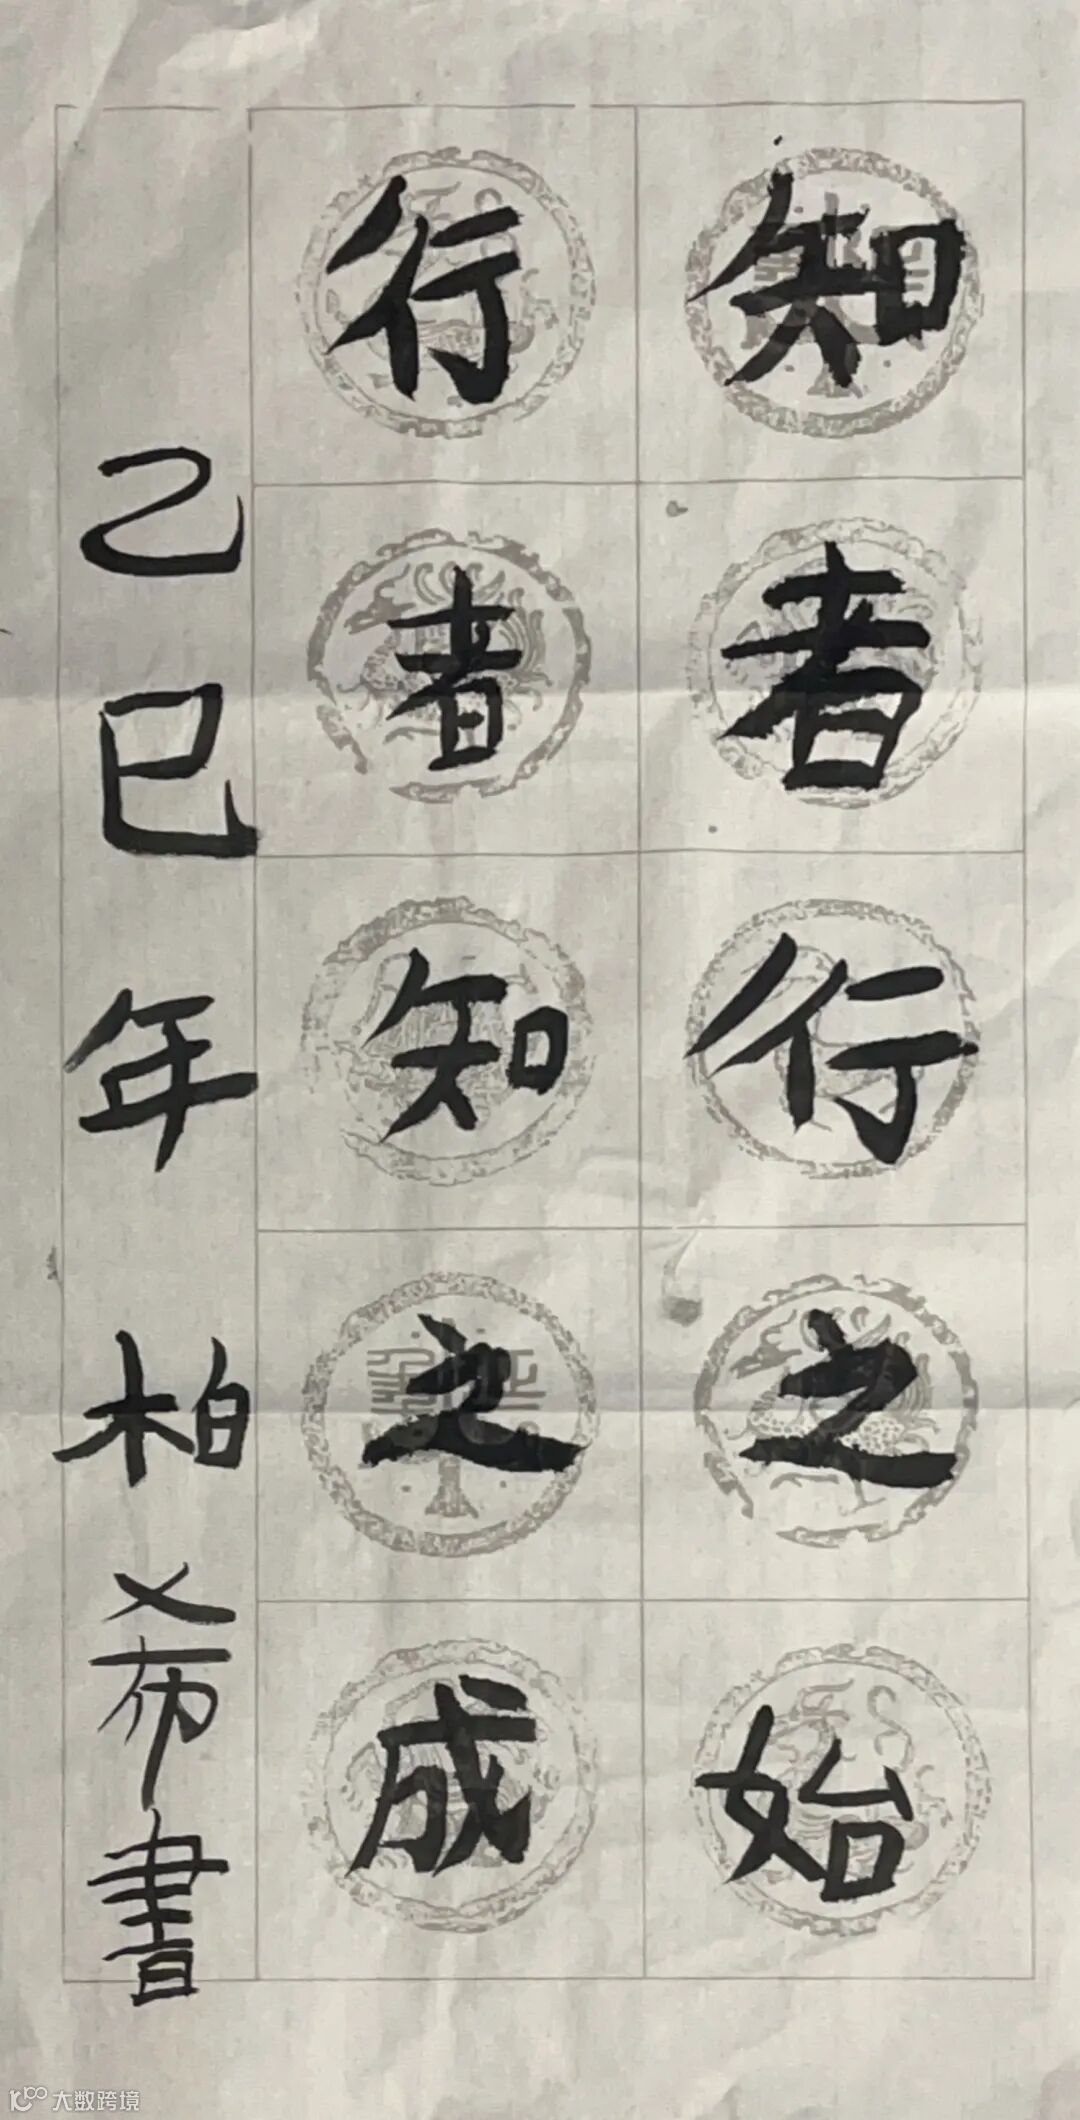 知者行之始
行者知之成
乙巳年 柏希書
大数跨境